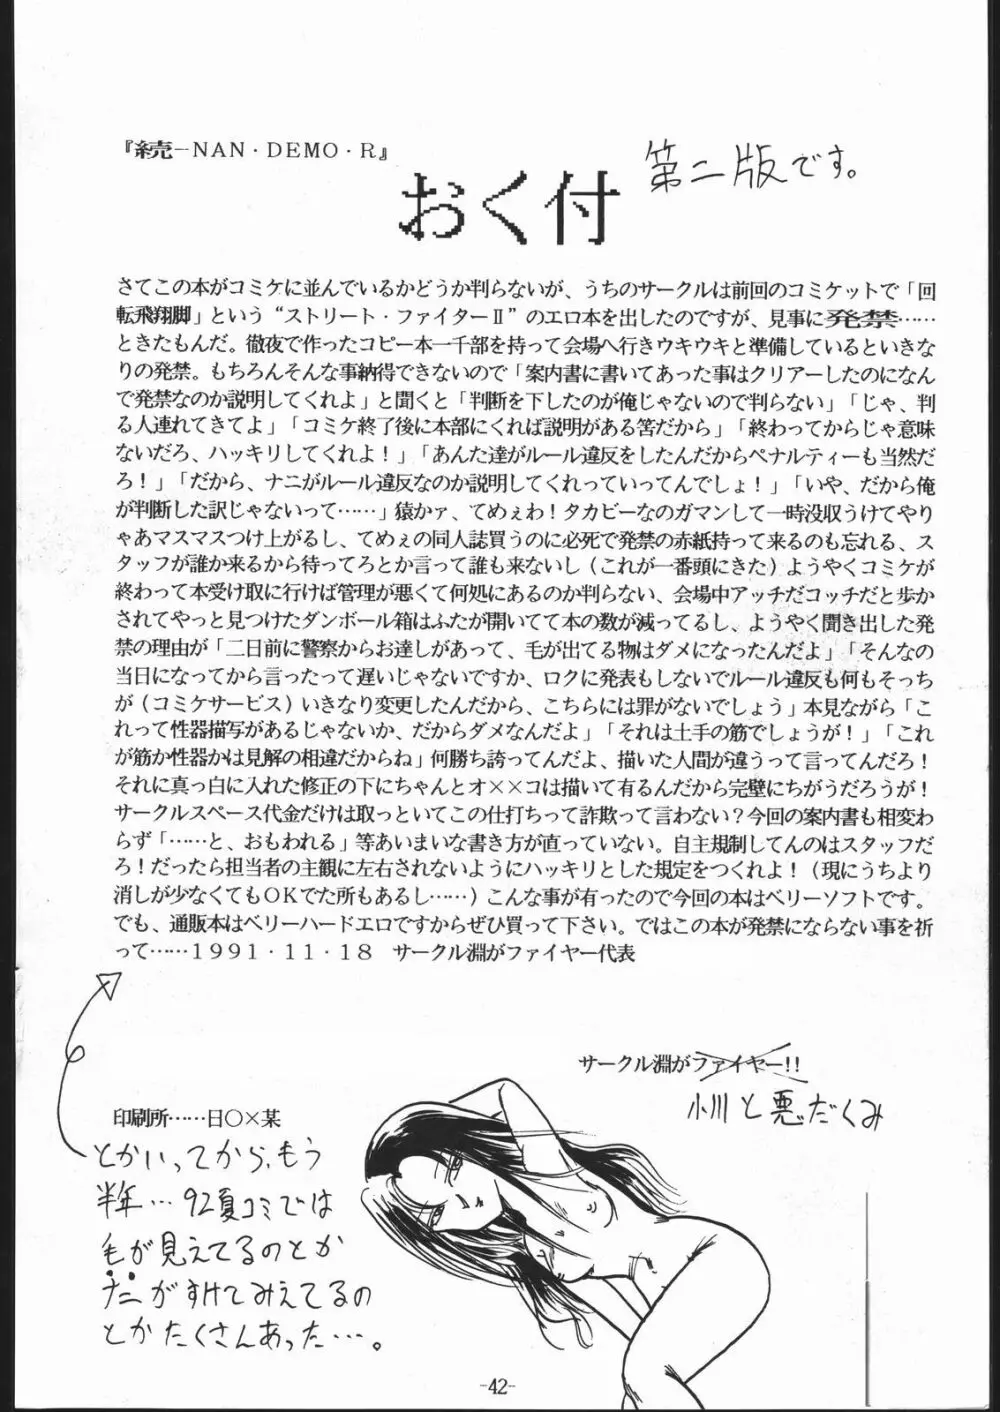 『続－NAN・DEMO・R』
第二版です。
おく付
さてこの本がコミケに並んでいるかどうか判らないが、うちのサークルは前回のコミケットで「回
転飛翔脚」という“ストリート・ファイターⅡ”のエロ本を出したのですが、見事に発禁……
ときたもんだ。徹夜で作ったコピー本一千部を持って会場へ行きウキウキと準備しているといきな
りの発禁。もちろんそんな事納得できないので「案内書に書いてあった事はクリアーしたのになん
で発禁なのか説明してくれよ」と聞くと「判断を下したのが俺じゃないので判らない」「じゃ、判
る人連れてきてよ」「コミケ終了後に本部にくれば説明がある筈だから」「終わってからじゃ意味
ないだろ、ハッキリしてくれよ！」「あんた達がルール違反をしたんだからペナルティーも当然だ
ろ！」「だから、ナニがルール違反なのか説明してくれっていってんでしょ！」「いや、だから俺
が判断した訳じゃないって……」猿かァ、てめぇわ！タカビーなのガマンして一時没収うけてやり
ゃあマスマスつけ上がるし、てめぇの同人誌買うのに必死で発禁の赤紙持って来るのも忘れる、ス
タッフが誰か来るから待ってろとか言って誰も来ないし（これが一番頭にきた）ようやくコミケが
終わって本受け取に行けば管理が悪くて何処にあるのか判らない、会場中アッチだコッチだと歩か
されてやっと見つけたダンボール箱はふたが開いてて本の数が減ってるし、ようやく聞き出した発
禁の理由が「二日前に警察からお達しがあって、毛が出てる物はダメになったんだよ」「そんなの
当日になってから言ったって遅いじゃないですか、ロクに発表もしないでルール違反も何もそっち
が（コミケサービス）いきなり変更したんだから、こちらには罪がないでしょう」本見ながら「こ
れって性器描写があるじゃないか、だからダメなんだよ」「それは土手の筋でしょうが！」「これ
が筋か性器かは見解の相違だからね」何勝ち誇ってんだよ、描いた人間が違うって言ってんだろ！
それに真っ白に入れた修正の下にちゃんとオ××コは描いて有るんだから完璧にちがうだろうが！
サークルスペース代金だけは取っといてこの仕打ちって詐欺って言わない？今回の案内書も相変わ
らず「……と、おもわれる」等あいまいな書き方が直っていない。自主規制してんのはスタッフだ
ろ！だったら担当者の主観に左右されないようにハッキリとした規定をつくれよ！（現にうちより
消しが少なくてもＯＫでた所もあるし……）こんな事が有ったので今回の本はベリーソフトです。
でも、通販本はベリーハードエロですからぜひ買って下さい。ではこの本が発禁にならない事を祈
って……１９９１・１１・１８　サークル淵がファイヤー代表
サークル淵がファイヤー!!
小川と悪だくみ
印刷所……日〇×某
とかいってから、もう
半年…92夏コミでは
毛が見えてるのとか
ナニがすけてみえてるの
とかたくさんあった…。
-42-